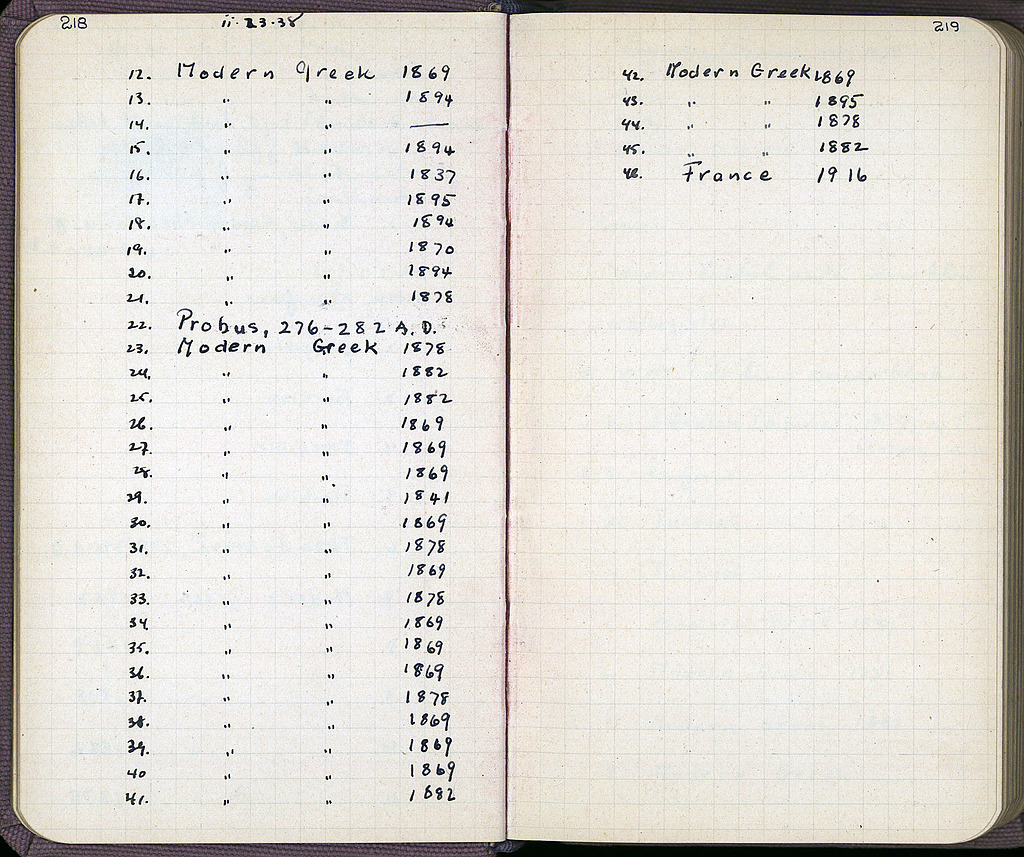 218
ii-23-38
12. Modern Greek 1869
13. " " 1894
14. " " —
15. " " 1894
16. " " 1837
17. " " 1895
18. " " 1894
19. " " 1870
20. " " 1894
21. " " 1878
22. Probus, 276-282 A.D.
23. Modern Greek 1878
24. " " 1882
25. " " 1882
26. " " 1869
27. " " 1869
28. " " 1869
29. " " 1841
30. " " 1869
31. " " 1878
32. " " 1869
33. " " 1878
34 " " 1869
35. " " 1869
36. " " 1869
37. " " 1878
38. " " 1869
39. " " 1869
40 " " 1869
41. " " 1882
219
42. Modern Greek 1869
43. " " 1895
44. " " 1878
45. " " 1882
46. France 1916